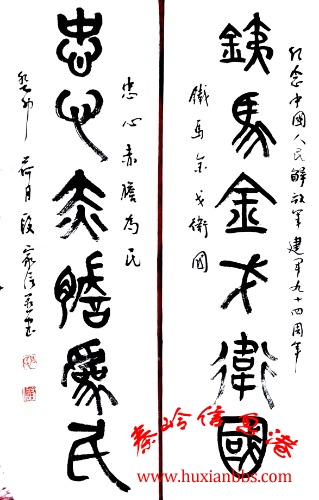 纪念中國人民解放军建军九十四周年
銕馬金戈衛國
鐵馬金戈衛國
忠心赤膽為民
忠心赤膽爲民
癸卯荷月段家
秦岭信息港
www.huxianbbs.com